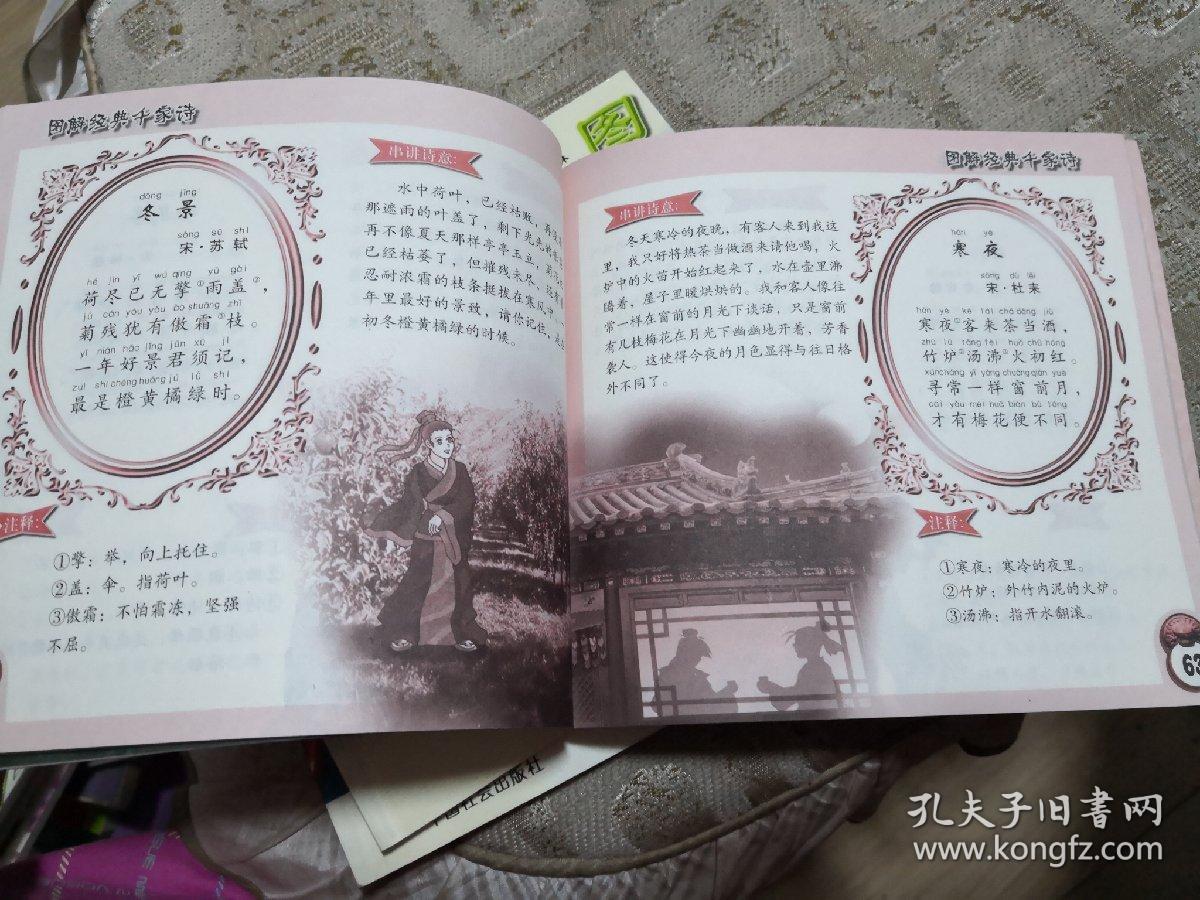 图解经典千家诗
dōng jǐng
冬景
sòng sū shì
宋·苏轼
hé jìn yǐ wú qíng yǔ gài
荷尽已无擎①雨盖②，
jú cán yóu yǒu ào shuāng zhī
菊残犹有傲霜③枝。
yì nián hǎo jǐng jūn xū jì
一年好景君须记，
zuì shì chéng huáng jú lǜ shí
最是橙黄橘绿时。
注释：
①擎：举，向上托住。
②盖：伞。指荷叶。
③傲霜：不怕霜冻，坚强
不屈。
串讲诗意：
水中荷叶，已经枯败，再没有
那遮雨的叶盖了，剩下光光的
再不像夏天那样亭亭玉立，菊花
已经枯萎了，但摧残未尽，还有
忍耐浓霜的枝条挺拔在寒风中，
年里最好的景致，请你记住，
初冬橙黄橘绿的时候。
图
图解经典千家诗
串讲诗意：
冬天寒冷的夜晚，有客人来到我这
里，我只好将热茶当做酒来请他喝，火
炉中的火苗开始红起来了，水在壶里沸
腾着，屋子里暖烘烘的。我和客人像往
常一样在窗前的月光下谈话，只是窗前
有几枝梅花在月光下幽幽地开着，芳香
袭人。这使得今夜的月色显得与往日格
外不同了。
hán yè
寒夜
sòng dù lěi
宋·杜耒
hán yè kè lái chá dāng jiǔ
寒夜①客来茶当酒，
zhú lú tāng fèi huǒ chū hóng
竹炉②汤沸③火初红。
xún cháng yí yàng chuāng qián yuè
寻常一样窗前月，
cái yǒu méi huā biàn bù tóng
才有梅花便不同。
注释：
①寒夜：寒冷的夜里。
②竹炉：外竹内泥的火炉。
③汤沸：指开水翻滚。
63
中国社会出版社
孔夫子旧書网
www.kongfz.com